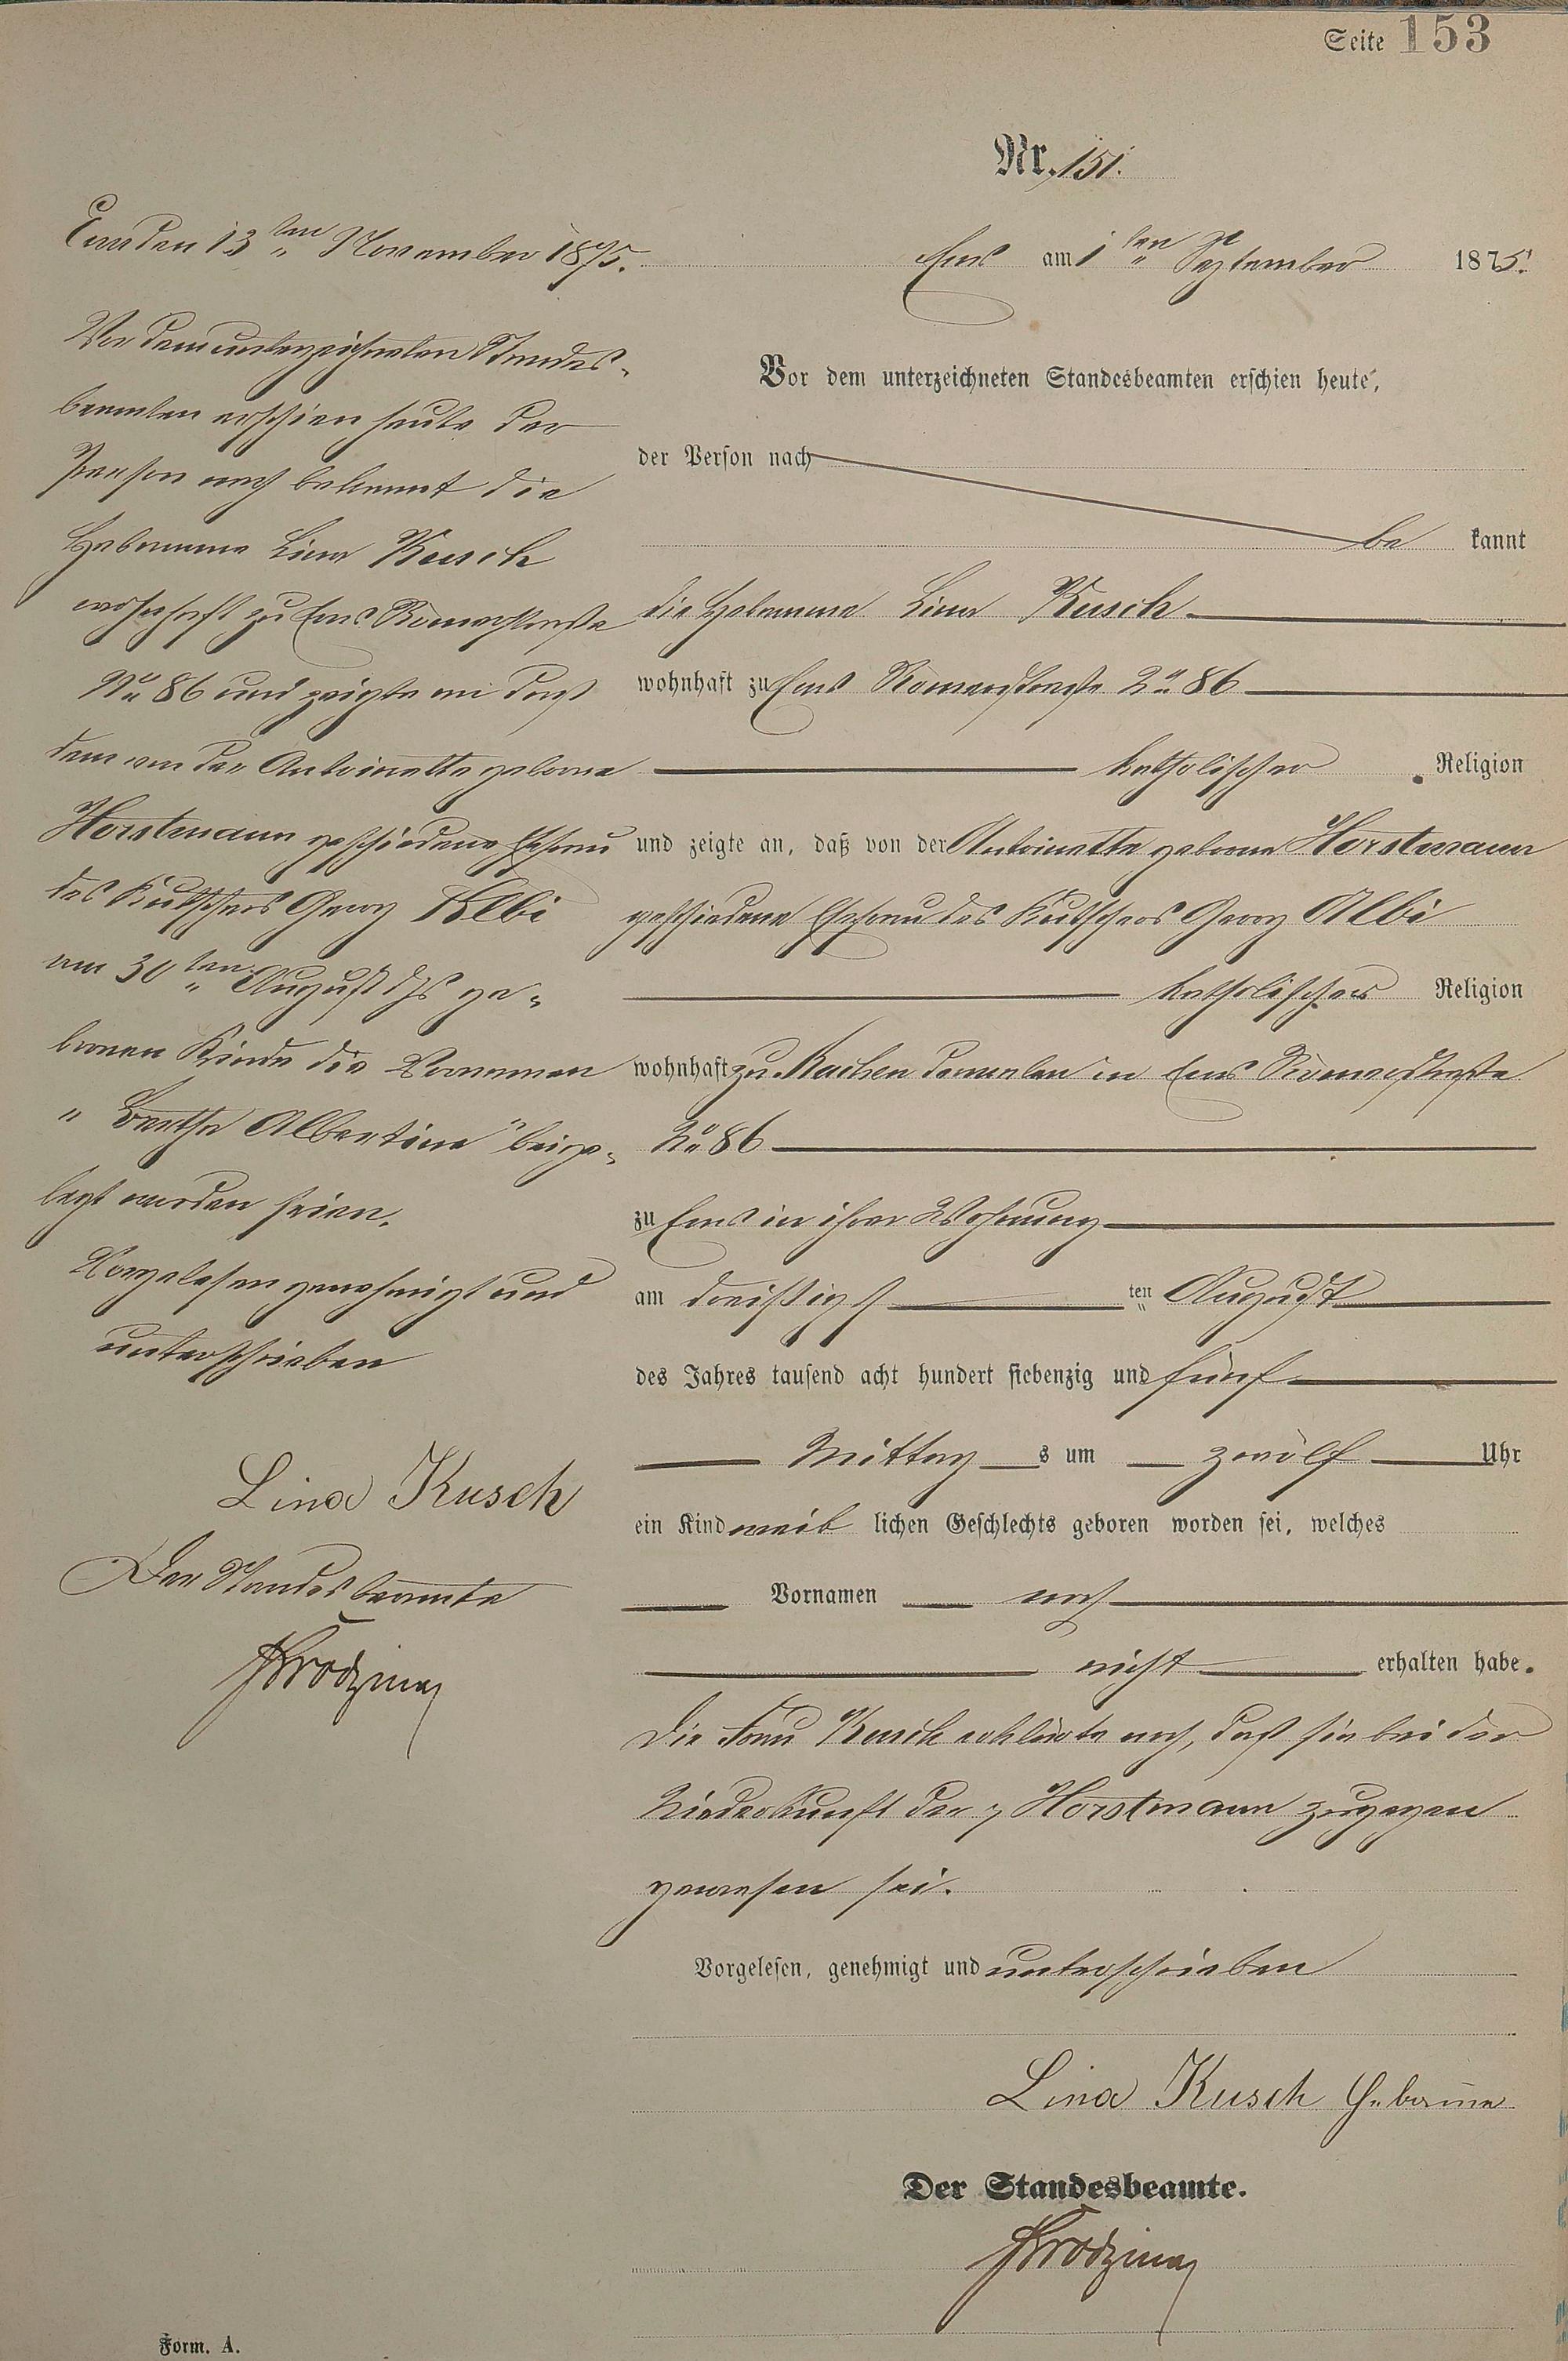 Seite 153
Nr. 151.
Ems am 1ten September 1875.
Vor dem unterzeichneten Standesbeamten erschien heute,
der Person nach
be kannt
die Hebamme Lina Kusch
wohnhaft zu Ems Römerstraße No 86
katholischer Religion
und zeigte an, daß von der Antoinette geborne Horstmann
geschiedene Ehefrau des Kutschers Georg Albi
katholischer Religion
wohnhaft zu Aachen dermalen in Ems Römerstraße
No 86
zu Ems in ihrer Wohnung
am dreißigst ten August
des Jahres tausend acht hundert siebenzig und fünf
Mittag s um zwölf Uhr
ein Kind weib lichen Geschlechts geboren worden sei, welches
Vornamen noch
nicht erhalten habe.
Die Frau Kusch erklärte noch, daß sie bei der
Niederkunft der Horstmann zugegen
gewesen sei.
Vorgelesen, genehmigt und unterschrieben
Lina Kusch Hebamme
Der Standesbeamte.
Form. A.
Ems den 13ten November 1875.
Vor dem unterzeichneten Standes-
beamten erschien heute der
Person nach bekannt die
Hebamme Lina Kusch
wohnhaft zu Ems Römerstraße
No 86 und zeigte an daß
dem von der Antoinette geborne
Horstmann geschiedene Ehefrau
des Kutschers Georg Albi
am 30ten August djs ge-
bornen Kinde die Vornamen
"Bertha Albertine" beige-
legt worden seien.
Vorgelesen genehmigt und
unterschrieben
Lina Kusch
Der Standesbeamte